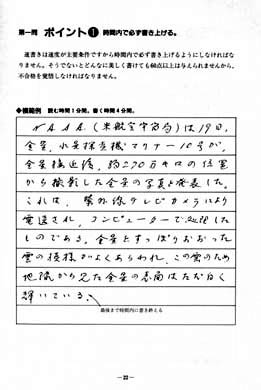 第一問 ポイント❶ 時間内で必ず書き上げる。
速書きは速度が主要条件ですから時間内で必ず書き上げるようにしなければな
りません。そうでないとどんなに美しく書けても60点以上は与えられませんから、
不合格を覚悟しなければなりません。
◆模範例 読む時間1分間。書く時間4分間。
NASA(米航空宇宙局)は19日、
金星、水星探査機マリナー10号が、
金星接近後、約270万キロの位置
から撮影した金星の写真を発表した。
これは、紫外線テレビカメラにより
電送され、コンピューターで処理した
ものである。金星をすっぽりおおった
雲の模様がよくあらわれ、この雲のため
地球から見た金星の表面はただ白く
輝いている。
最後まで時間内に書き終える
―22―